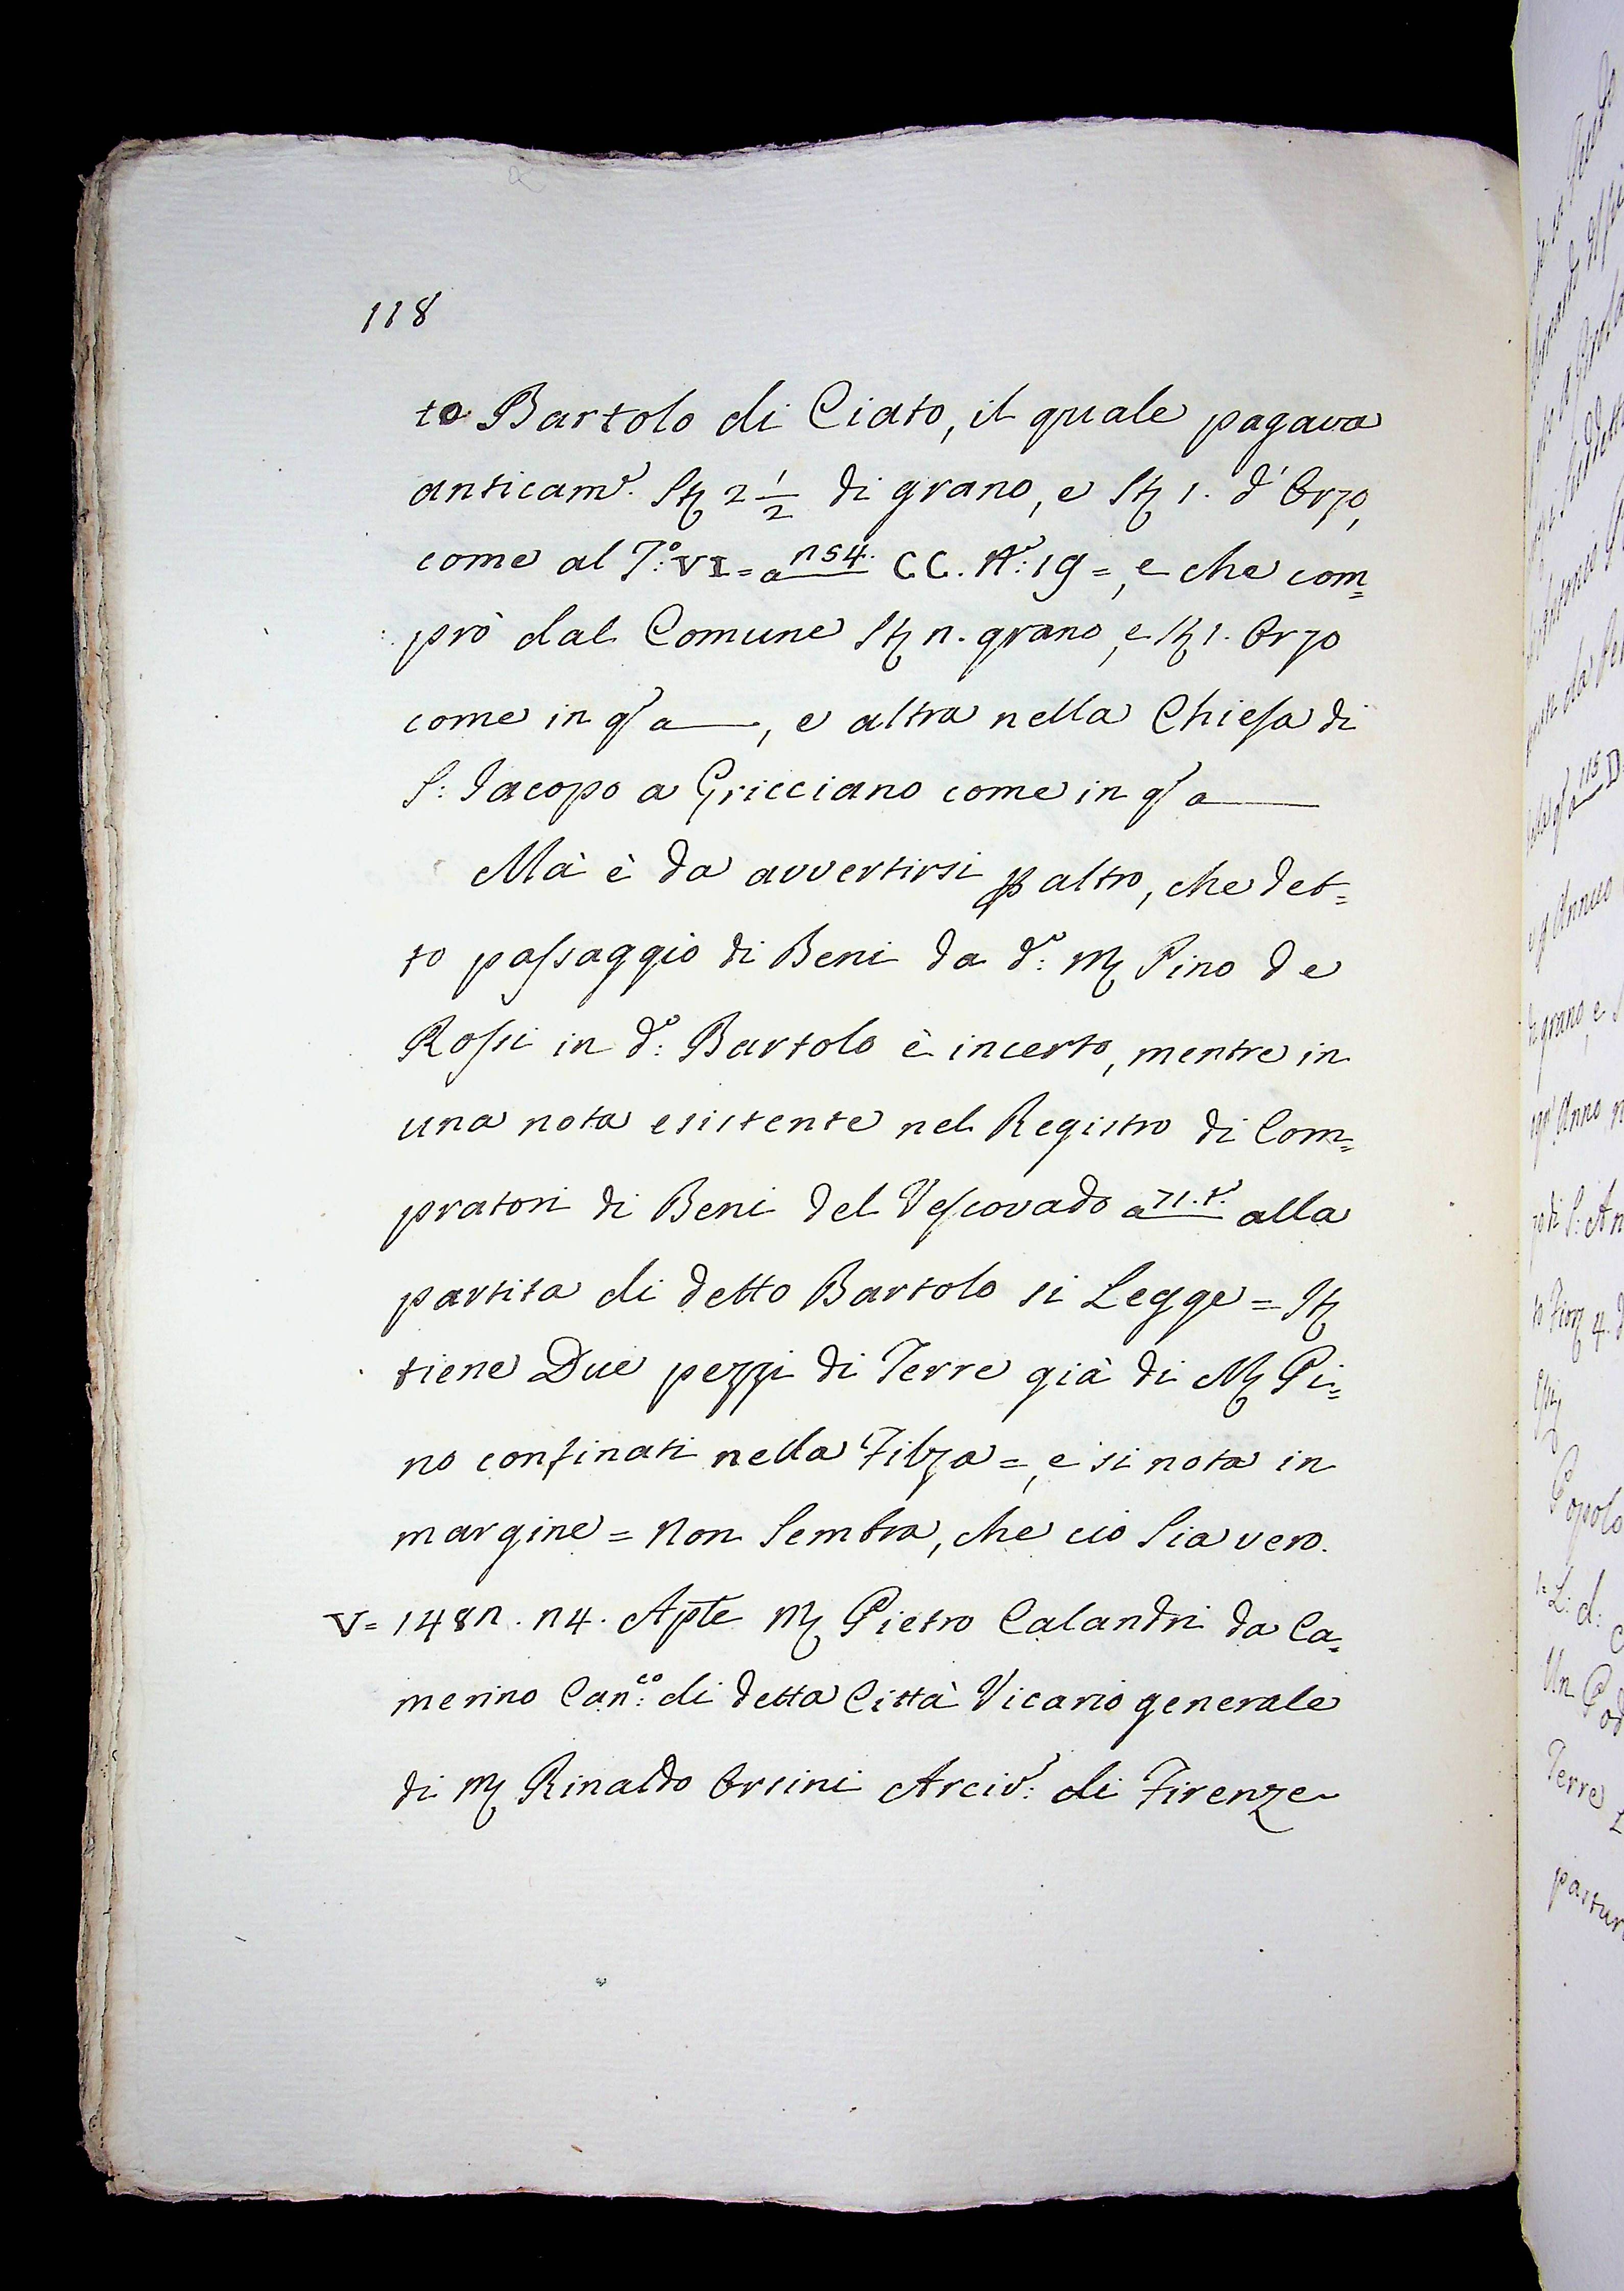 118
to Bartolo di Ciato, il quale pagava
anticam.e St 2 1/2 di grano, e St 1. d'Orzo,
come al T.o: VI = a 254. CC. N.o: 19 =, e che com=
prò dal Comune St 2. grano, e St 1. Orzo
come in qo a ___, e altra nella Chiesa di
S: Iacopo a Gricciano come in qo a ___
Mà è da avvertirsi p altro, che det=
to passaggio di Beni da d.o: M Pino de
Rossi in d.o: Bartolo è incerto, mentre in
una nota esistente nel Registro di Com=
pratori di Beni del Vescovado a 71. t. alla
partita di detto Bartolo si Legge = It
tiene Due pezzi di Terre già di M Pi=
no confinati nella Filza =, e si nota in
margine = Non Sembra, che ciò Sia vero.
V = 1482. 24. Apte M Pietro Calandri da Ca=
merino Can.co: di detta Città Vicario generale
di M Rinaldo Orsini Arciv.o: di Firenze